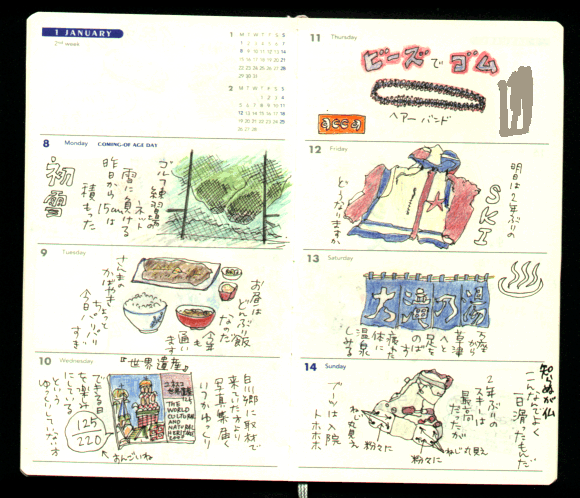 1 JANUARY
2nd week
1 M T W T F S S
1 2 3 4 5 6 7
8 9 10 11 12 13 14
15 16 17 18 19 20 21
22 23 24 25 26 27 28
29 30 31
2 M T W T F S S
1 2 3 4
5 6 7 8 9 10 11
12 13 14 15 16 17 18
19 20 21 22 23 24 25
26 27 28
8 Monday COMING-OF AGE DAY
初雪
昨日から15cmは
積もった
雪に負ける
ゴルフ練習場の
ネット
9 Tuesday
さんまの
かばやき
ちょって
今日パリパリ
すぎ
お昼は
どんぶり飯
だった
今年
通い
ます
10 Wednesday
『世界遺産』
ユネスコ
世界遺産
THE
WORLD
CULTURAL
AND
NATURAL
HERITAGE
白川郷に取材で
来ていた方より
写真集届く
いつかゆっくり
できる日
を楽しみ
にしている
という
ゆっくりしていなオ
125
220
11 Thursday
ビーズでゴム
ヘアーバンド
acca
12 Friday
明日は2年ぶりの
SKI
どうなりますか
13 Saturday
大滝乃湯
万座から
草津
へと
足を
のば
す
疲れた
体に
温泉
しみる
14 Sunday
知らぬが仏
こんなでよく
一日滑ったもんだ
2年ぶりの
スキーは
最高
だったが
ブーツは入院
トホホホ
ねじ丸見え
粉々に
粉々に
ねじ丸見え